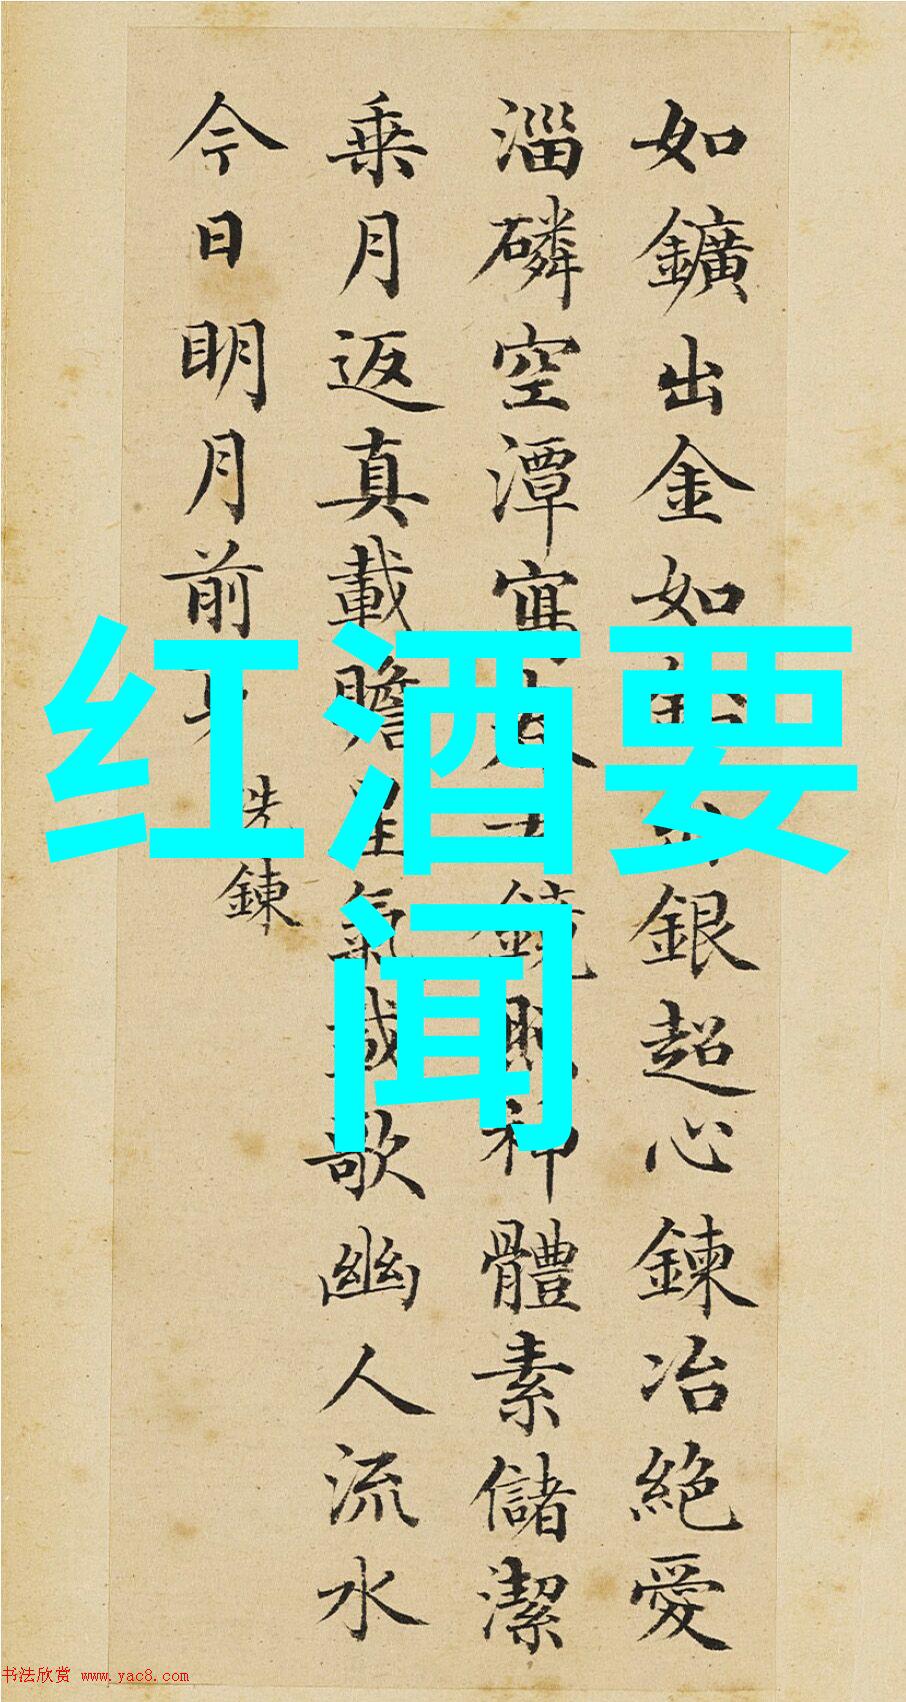 如鑛出金如銀超心鍊冶絕愛
淄磷空潭寫鏡照神體素儲潔
乘月返真載瞻星氣載歌幽人流水
今日明月前
洗鍊
红酒要
闻
书法欣赏 www.yac8.com